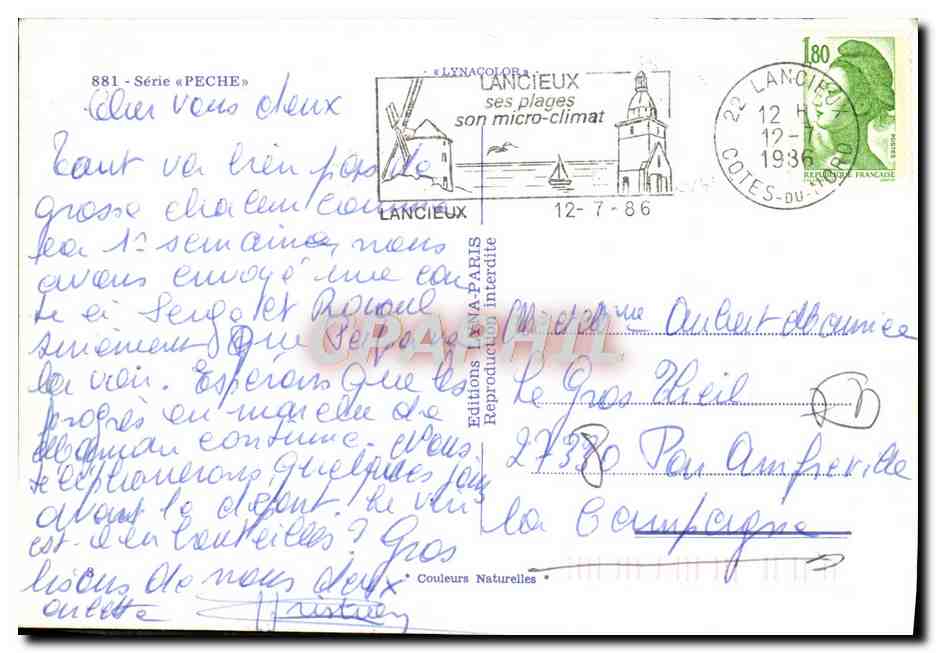 881 - Série «PECHE»
« LYNACOLOR »
LANCIEUX
ses plages
son micro-climat
LANCIEUX
12-7-86
22 LANCIEUX
12 H
12-7
1986
COTES-DU-NORD
1,80
POSTES
REPUBLIQUE FRANÇAISE
Cher vous deux
Tout va bien pas la
grosse chaleur comme
la 1e semaine, nous
avons envoyé une car
te à Serge et
que Serge
la voir. Esperons que les
progrès en marche de
maman continue. Nous
telephonerons quelques jours
avant le départ. Le vin
est-il en bouteilles? Gros
bisous de nous deux
Christian
Editions LYNA-PARIS
Reproduction interdite
CPAPHIL
Mr et Mme Aubert Maurice
Le Gros Theil
27370 Par Amfreville
la Campagne
* Couleurs Naturelles *